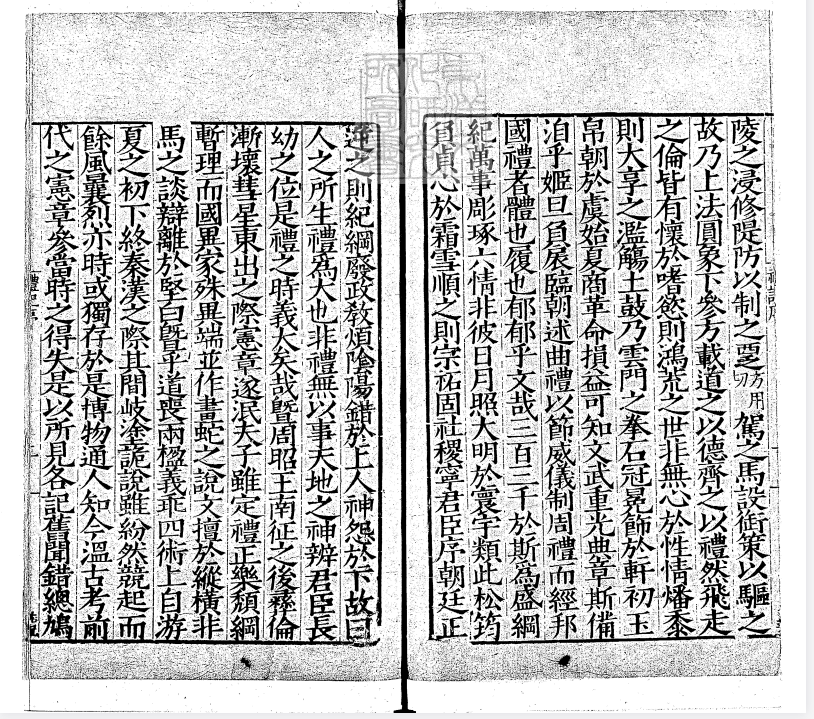 陵之浸修隄防以制之覂方用切駕之馬設銜策以驅之
故乃上法圓象下參方載道之以德齊之以禮然飛走
之倫皆有懷於嗜慾則鴻荒之世非無心於性情燔黍
則大享之濫觴土鼓乃雲門之拳石冠冕飾於軒初玉
帛朝於虞始夏商革命損益可知文武重光典章斯備
洎乎姬旦負扆臨朝述曲禮以節威儀制周禮而經邦
國禮者體也履也郁郁乎文哉三百三千於斯爲盛綱
紀萬事彫琢六情非彼日月照大明於寰宇類此松筠
負貞心於霜雪順之則宗祐固社稷寧君臣序朝廷正
逆之則紀綱廢政教煩陰陽錯於上人神怨於下故曰
人之所生禮爲大也非禮無以事天地之神辨君臣長
幼之位是禮之時義大矣哉暨周昭王南征之後彝倫
漸壞彗星東出之際憲章遂泯夫子雖定禮正樂頹綱
暫理而國異家殊異端並作畫蛇之說文擅於縱橫非
馬之談辯離於堅白暨乎道喪兩楹義乖四術上自游
夏之初下終秦漢之際其間岐塗詭說雖紛然競起而
餘風曩烈亦時或獨存於是博物通人知今溫古考前
代之憲章參當時之得失是以所見各記舊聞錯總鳩